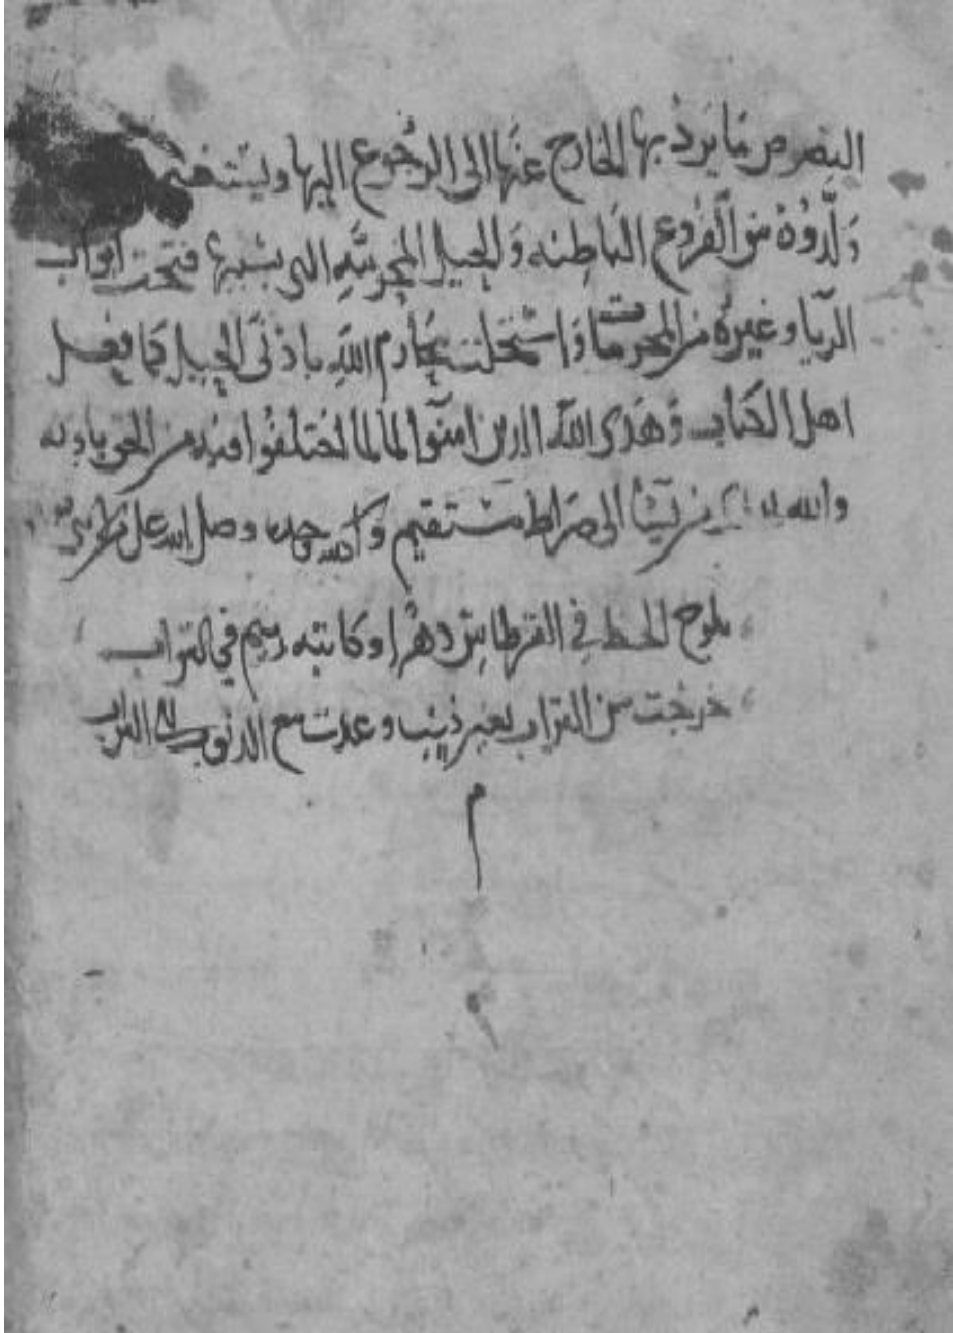 النصوص ما يرد بها الخارج عنها الى الرجوع اليها
ولدوه من الفروع الباطنه والحيل المجربته التي يشبهها فتحت ابواب
الريا وغيره من المحرمات واستحلت محارم الله باذنى الحيل كما فعل
اهل الكتاب وهدى الله الدين امنوا لما اختلفوا فيه من الحق باذنه
والله من يشا الى صراط مستقيم وحده وصلى الله على
يلوح الخط في القرطاس دهرا وكاتبه رميم في التراب
خرجت من التراب بغير ذنب وعدت مع الذنوب الى التراب
م